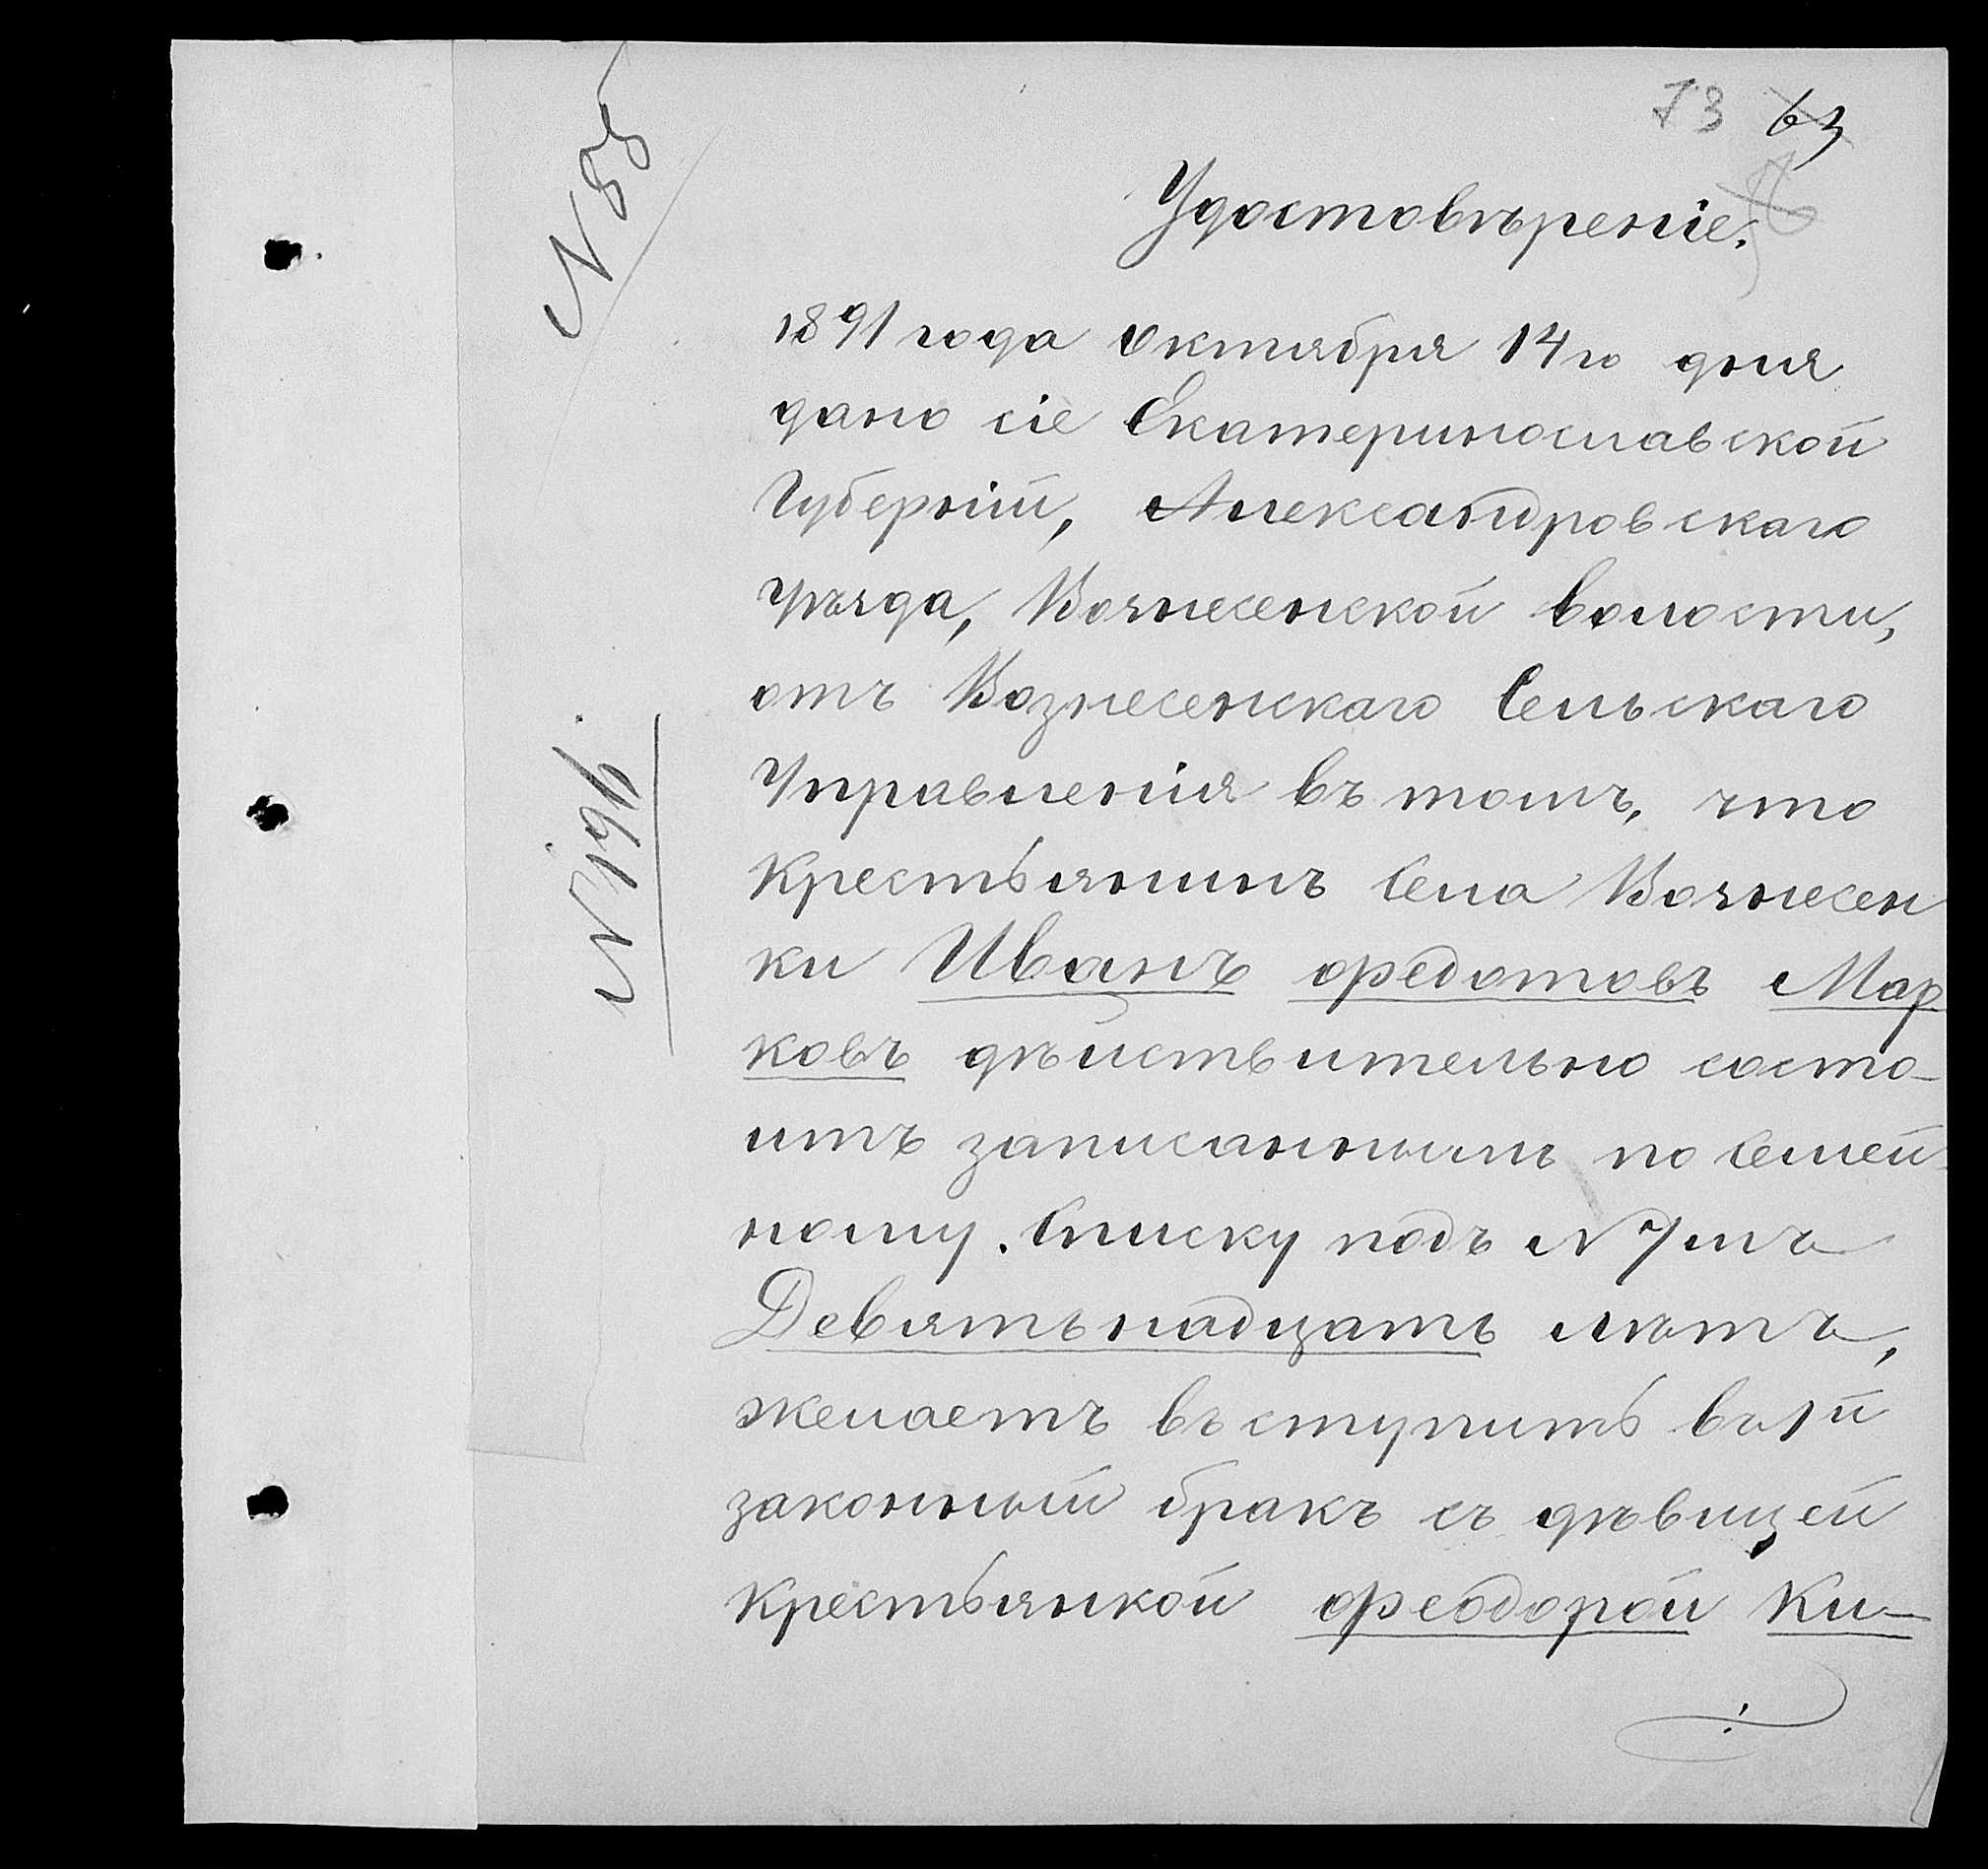 73 63
N 88
Удостовѣреніе.
1891 года Октября 14го дня
дано сіе Екатеринославской
Губерніи, Александровскаго
уѣзда, Вознесенской волости,
отъ Вознесенскаго Сельскаго
Управленія въ томъ, что
Крестьянинъ Села Вознесен
ки Иванъ Федотовъ Мар
ковъ дѣйствительно состо-
итъ записаннымъ по Семей-
ному. Списку подъ N 7мъ
Девятьнадцать лѣтъ,
желаетъ въступить въ 1й
законный бракъ съ дѣвицей
Крестьянкой Феодорой Ки-
N 196